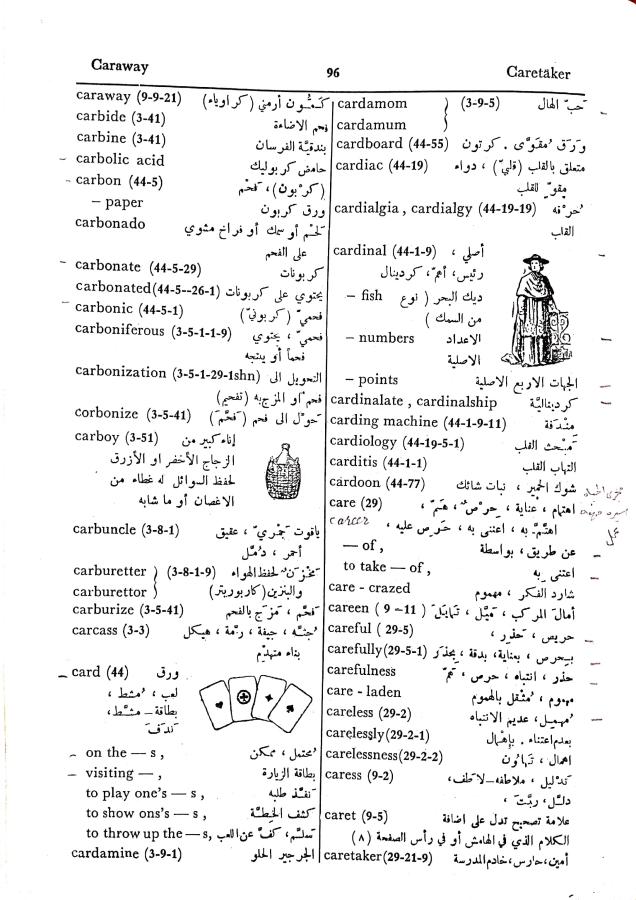 Caraway
96
Caretāker
caraway (9-9-21) كمّون أرمني (كراوياء)
carbide (3-41) فحم الاضاءة
carbine (3-41) بندقيّة الفرسان
carbolic acid حامض كربوليك
carbon (44-5) (كربون)، فَحْم
– paper ورق كربون
carbonado لحم أو سمك أو فراخ مشوي
على الفحم
carbonate (44-5-29) كربونات
carbonated(44-5--26-1) يحتوي على كربونات
carbonic (44-5-1) فحميّ (كربونيّ)
carboniferous (3-5-1-1-9) فحميّ، يحتوي
فحماً أو ينتجه
carbonization (3-5-1-29-1shn) التحويل الى
فحم او المزج به (تفحيم)
corbonize (3-5-41) حوّل الى فحم (فَحَّم)
carboy (3-51) إناء كبير من
الزجاج الأخضر او الأزرق
لحفظ السوائل له غطاء من
الاغصان أو ما شابه
carbuncle (3-8-1) ياقوت جمريّ، عقيق
أحمر، دُمَّل
carburetter } (3-8-1-9) مخزن لحفظ الهواء
carburettor } والبنزين (كاربوريتر)
carburize (3-5-41) فحّم، مزج بالفحم
carcass (3-3) جثة، جيفة، رمّة، هيكل
بناء متهدّم
card (44) ورق
لعب، مُشط،
بطاقة – مشّط،
ندف
on the — s, محتمل، ممكن
visiting —, بطاقة الزيارة
to play one's — s, نفّذ طلبه
to show ons's — s, كشف الخطّة
to throw up the — s, تسلّم، كفّ عن اللعب
cardamine (3-9-1) الجرجير الحلو
cardamom } (3-9-5) حبّ الهال
cardamum }
cardboard (44-55) ورق مُقوّى. كرتون
cardiac (44-19) متعلق بالقلب (قلبيّ)، دواء
مقوّ للقلب
cardialgia , cardialgy (44-19-19) حرقة
القلب
cardinal (44-1-9) أصلي،
رئيس، أهمّ، كردينال
– fish ديك البحر (نوع
من السمك)
– numbers الاعداد
الاصلية
– points الجهات الاربع الاصلية
cardinalate , cardinalship كرديناليّة
carding machine (44-1-9-11) مندفة
cardiology (44-19-5-1) مبحث القلب
carditis (44-1-1) التهاب القلب
cardoon (44-77) شوك الحمير، نبات شائك
care (29) اهتمام، عناية، حرص، همّ،
career
اهتمّ به، اعتنى به، حرص عليه،
— of, عن طريق، بواسطة
to take — of, اعتنى به
care - crazed شارد الفكر، مهموم
careen ( 9 –11) أمال المركب، مَيل، تمايل
careful ( 29-5) حريص، حذر،
carefully(29-5-1) بحرص، بعناية، بدقة، بحذر
carefulness حذر، انتباه، حرص، همّ
care - laden مهموم، مثقل بالهموم
careless (29-2) مهمل، عديم الانتباه
carelessly(29-2-1) بعدم اعتناء. بإهمال
carelessness(29-2-2) اهمال، تهاون
caress (9-2) تدليل، ملاطفة – لاطف،
دلّل، ربّت،
caret (9-5) علامة تصحيح تدل على اضافة
الكلام الذي في الهامش أو في رأس الصفحة (٨)
caretaker(29-21-9) أمين، حارس، خادم المدرسة